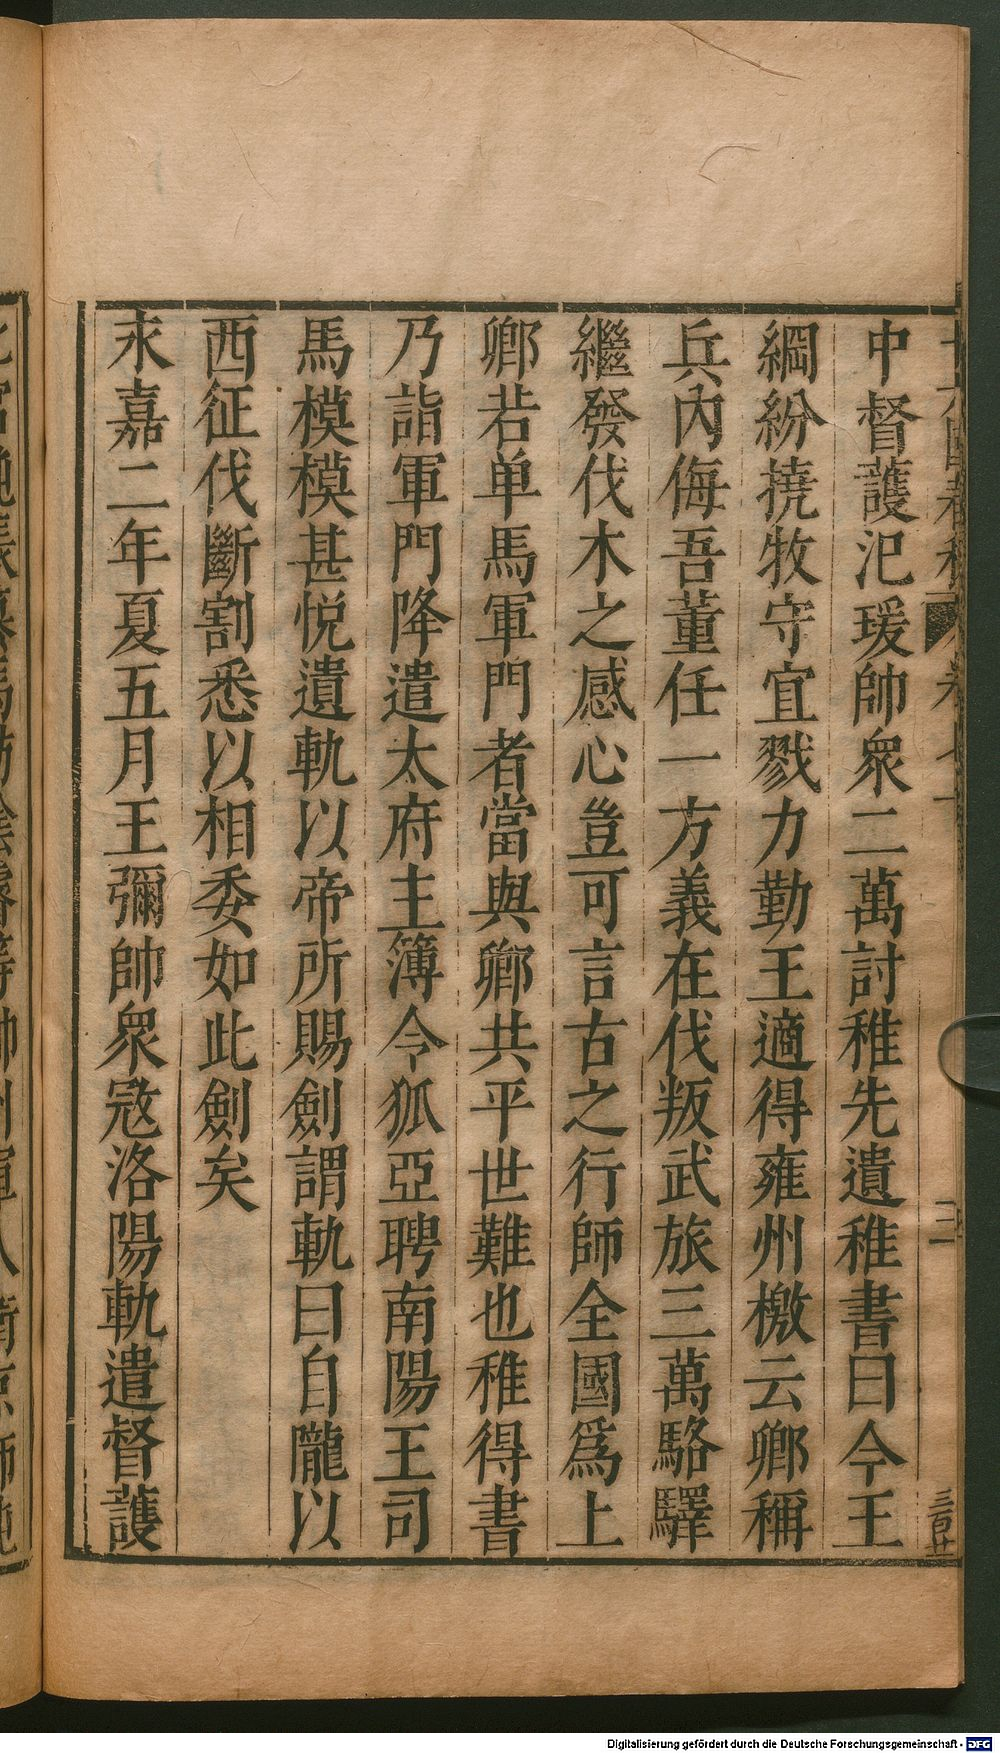 中督護氾瑗帥衆二萬討稚先遺稚書曰今王
綱紛撓牧守宜戮力勤王適得雍州檄云卿稱
兵內侮吾董任一方義在伐叛武旅三萬駱驛
繼發伐木之感心豈可言古之行師全國爲上
卿若单馬軍門者當與卿共平世難也稚得書
乃詣軍門降遣太府主簿令狐亞聘南陽王司
馬模模甚悅遺軌以帝所賜劍謂軌曰自隴以
西征伐斷割悉以相委如此劍矣
永嘉二年夏五月王彌帥衆冦洛陽軌遣督護
Digitalisierung gefördert durch die Deutsche Forschungsgemeinschaft - DFG